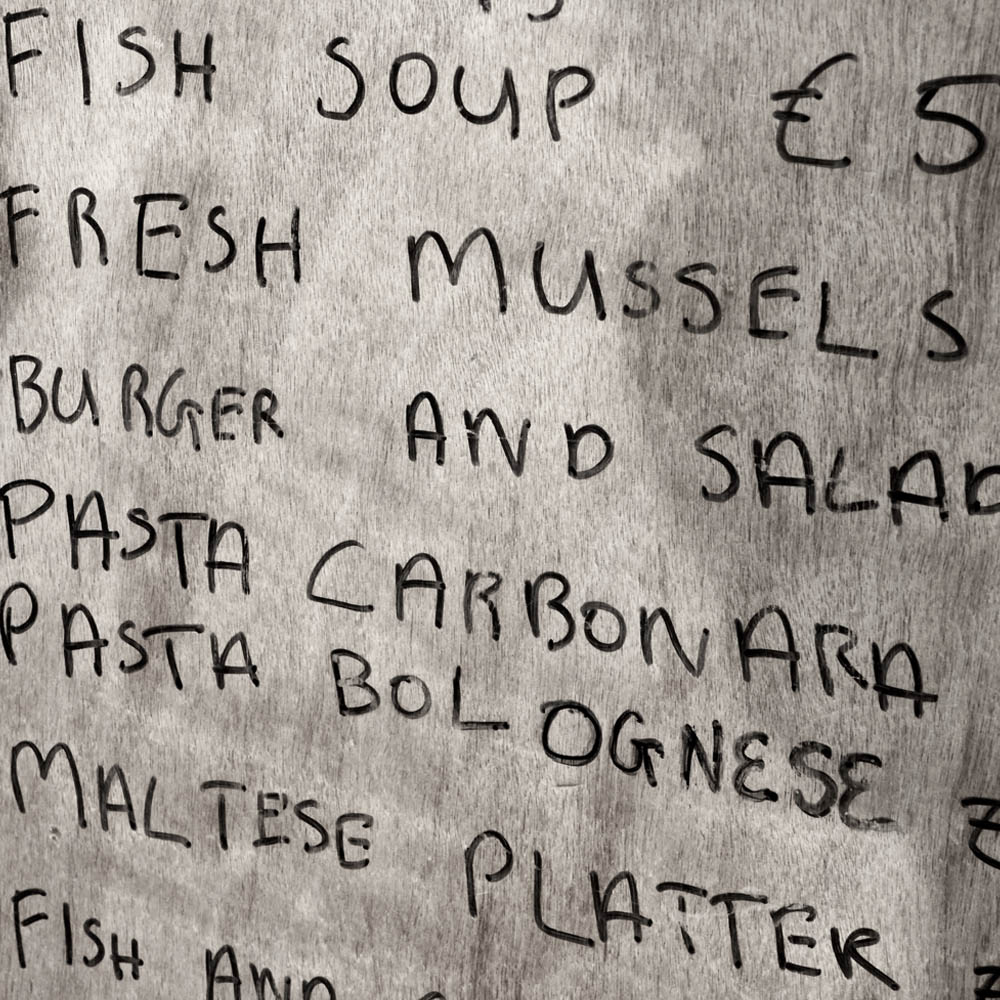 FISH SOUP €5
FRESH MUSSELS
BURGER AND SALAD
PASTA CARBONARA
PASTA BOLOGNESE
MALTESE PLATTER
FISH AND